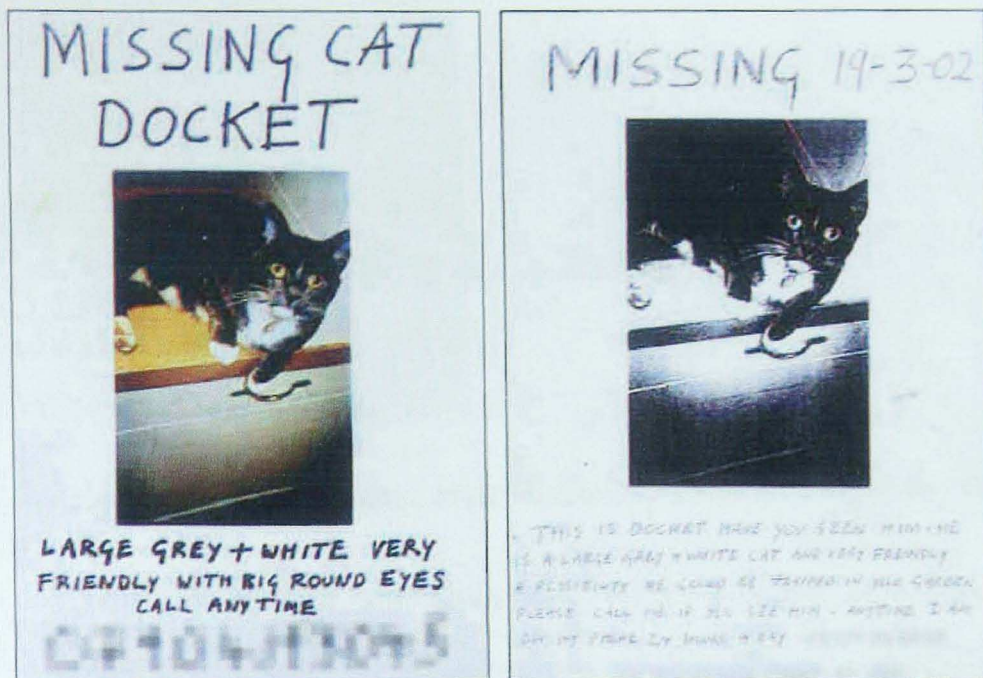 MISSING CAT
DOCKET
LARGE GREY + WHITE VERY
FRIENDLY WITH BIG ROUND EYES
CALL ANYTIME
MISSING 19-3-02
THIS IS DOCKET HAVE YOU SEEN HIM - HE
IS A LARGE GREY + WHITE CAT AND VERY FRIENDLY
HE COULD BE TRAPPED IN YOUR GARDEN
PLEASE CALL ME IF YOU SEE HIM - ANYTIME I AM
ON MY PHONE 24 HOURS A DAY